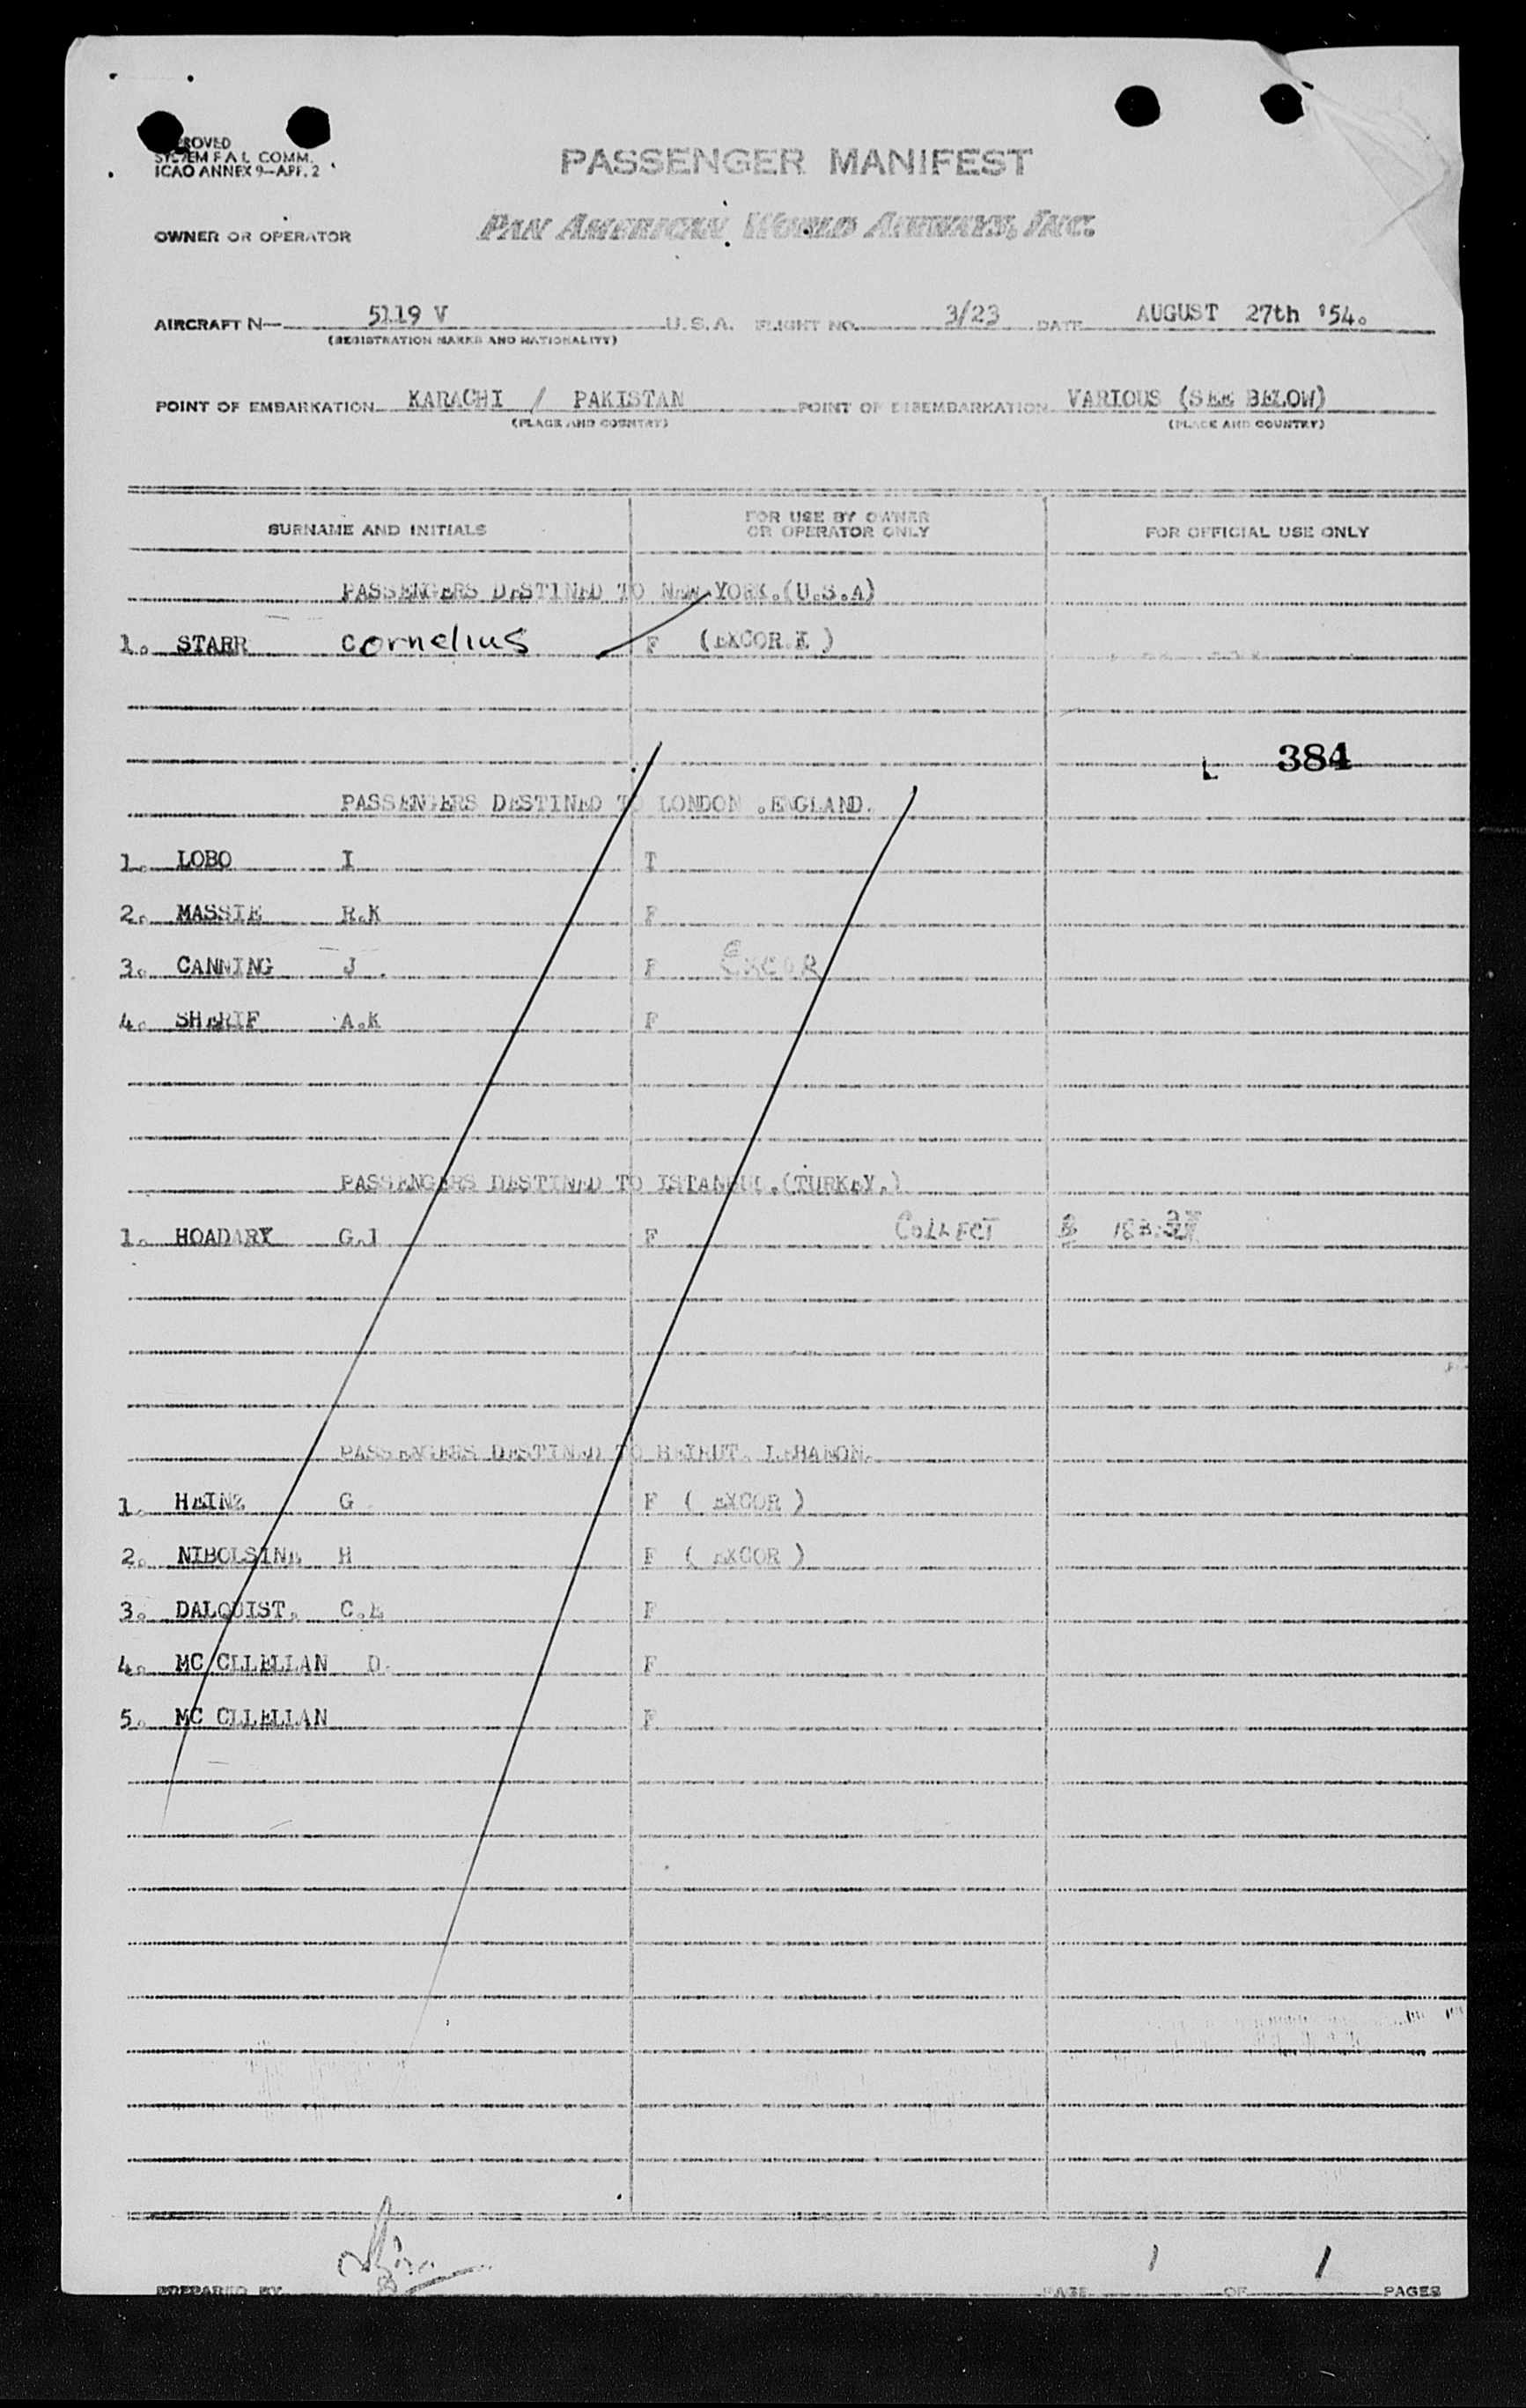 ROVED
SYSTEM F A L COMM.
ICAO ANNEX 9—APP. 2
PASSENGER MANIFEST
OWNER OR OPERATOR PAN AMERICAN WORLD AIRWAYS, INC.
AIRCRAFT N— 5119 V U.S.A. FLIGHT NO. 3/23 DATE AUGUST 27th '54.
(REGISTRATION MARKS AND NATIONALITY)
POINT OF EMBARKATION KARACHI / PAKISTAN POINT OF DISEMBARKATION VARIOUS (SEE BELOW)
(PLACE AND COUNTRY) (PLACE AND COUNTRY)
SURNAME AND INITIALS FOR USE BY OWNER OR OPERATOR ONLY FOR OFFICIAL USE ONLY
PASSENGERS DESTINED TO NEW YORK.(U.S.A)
1. STARR Cornelius F (EXCOR.K )
L 384
PASSENGERS DESTINED TO LONDON .ENGLAND.
1. LOBO I T
2. MASSIE R.K F
3. CANNING J . F EXCOR
4. SHERIF A.K F
PASSENGERS DESTINED TO ISTANBUL.(TURKEY.)
1. HOADARY G.I F COLLECT
PASSENGERS DESTINED TO BEIRUT. LEBANON.
1. HEINZ G F ( EXCOR )
2. NIBOLSINE H F ( EXCOR )
3. DALQUIST. C.E F
4. MC CLLELLAN D. F
5. MC CLLELLAN F
PREPARED BY PAGE 1 OF 1 PAGES